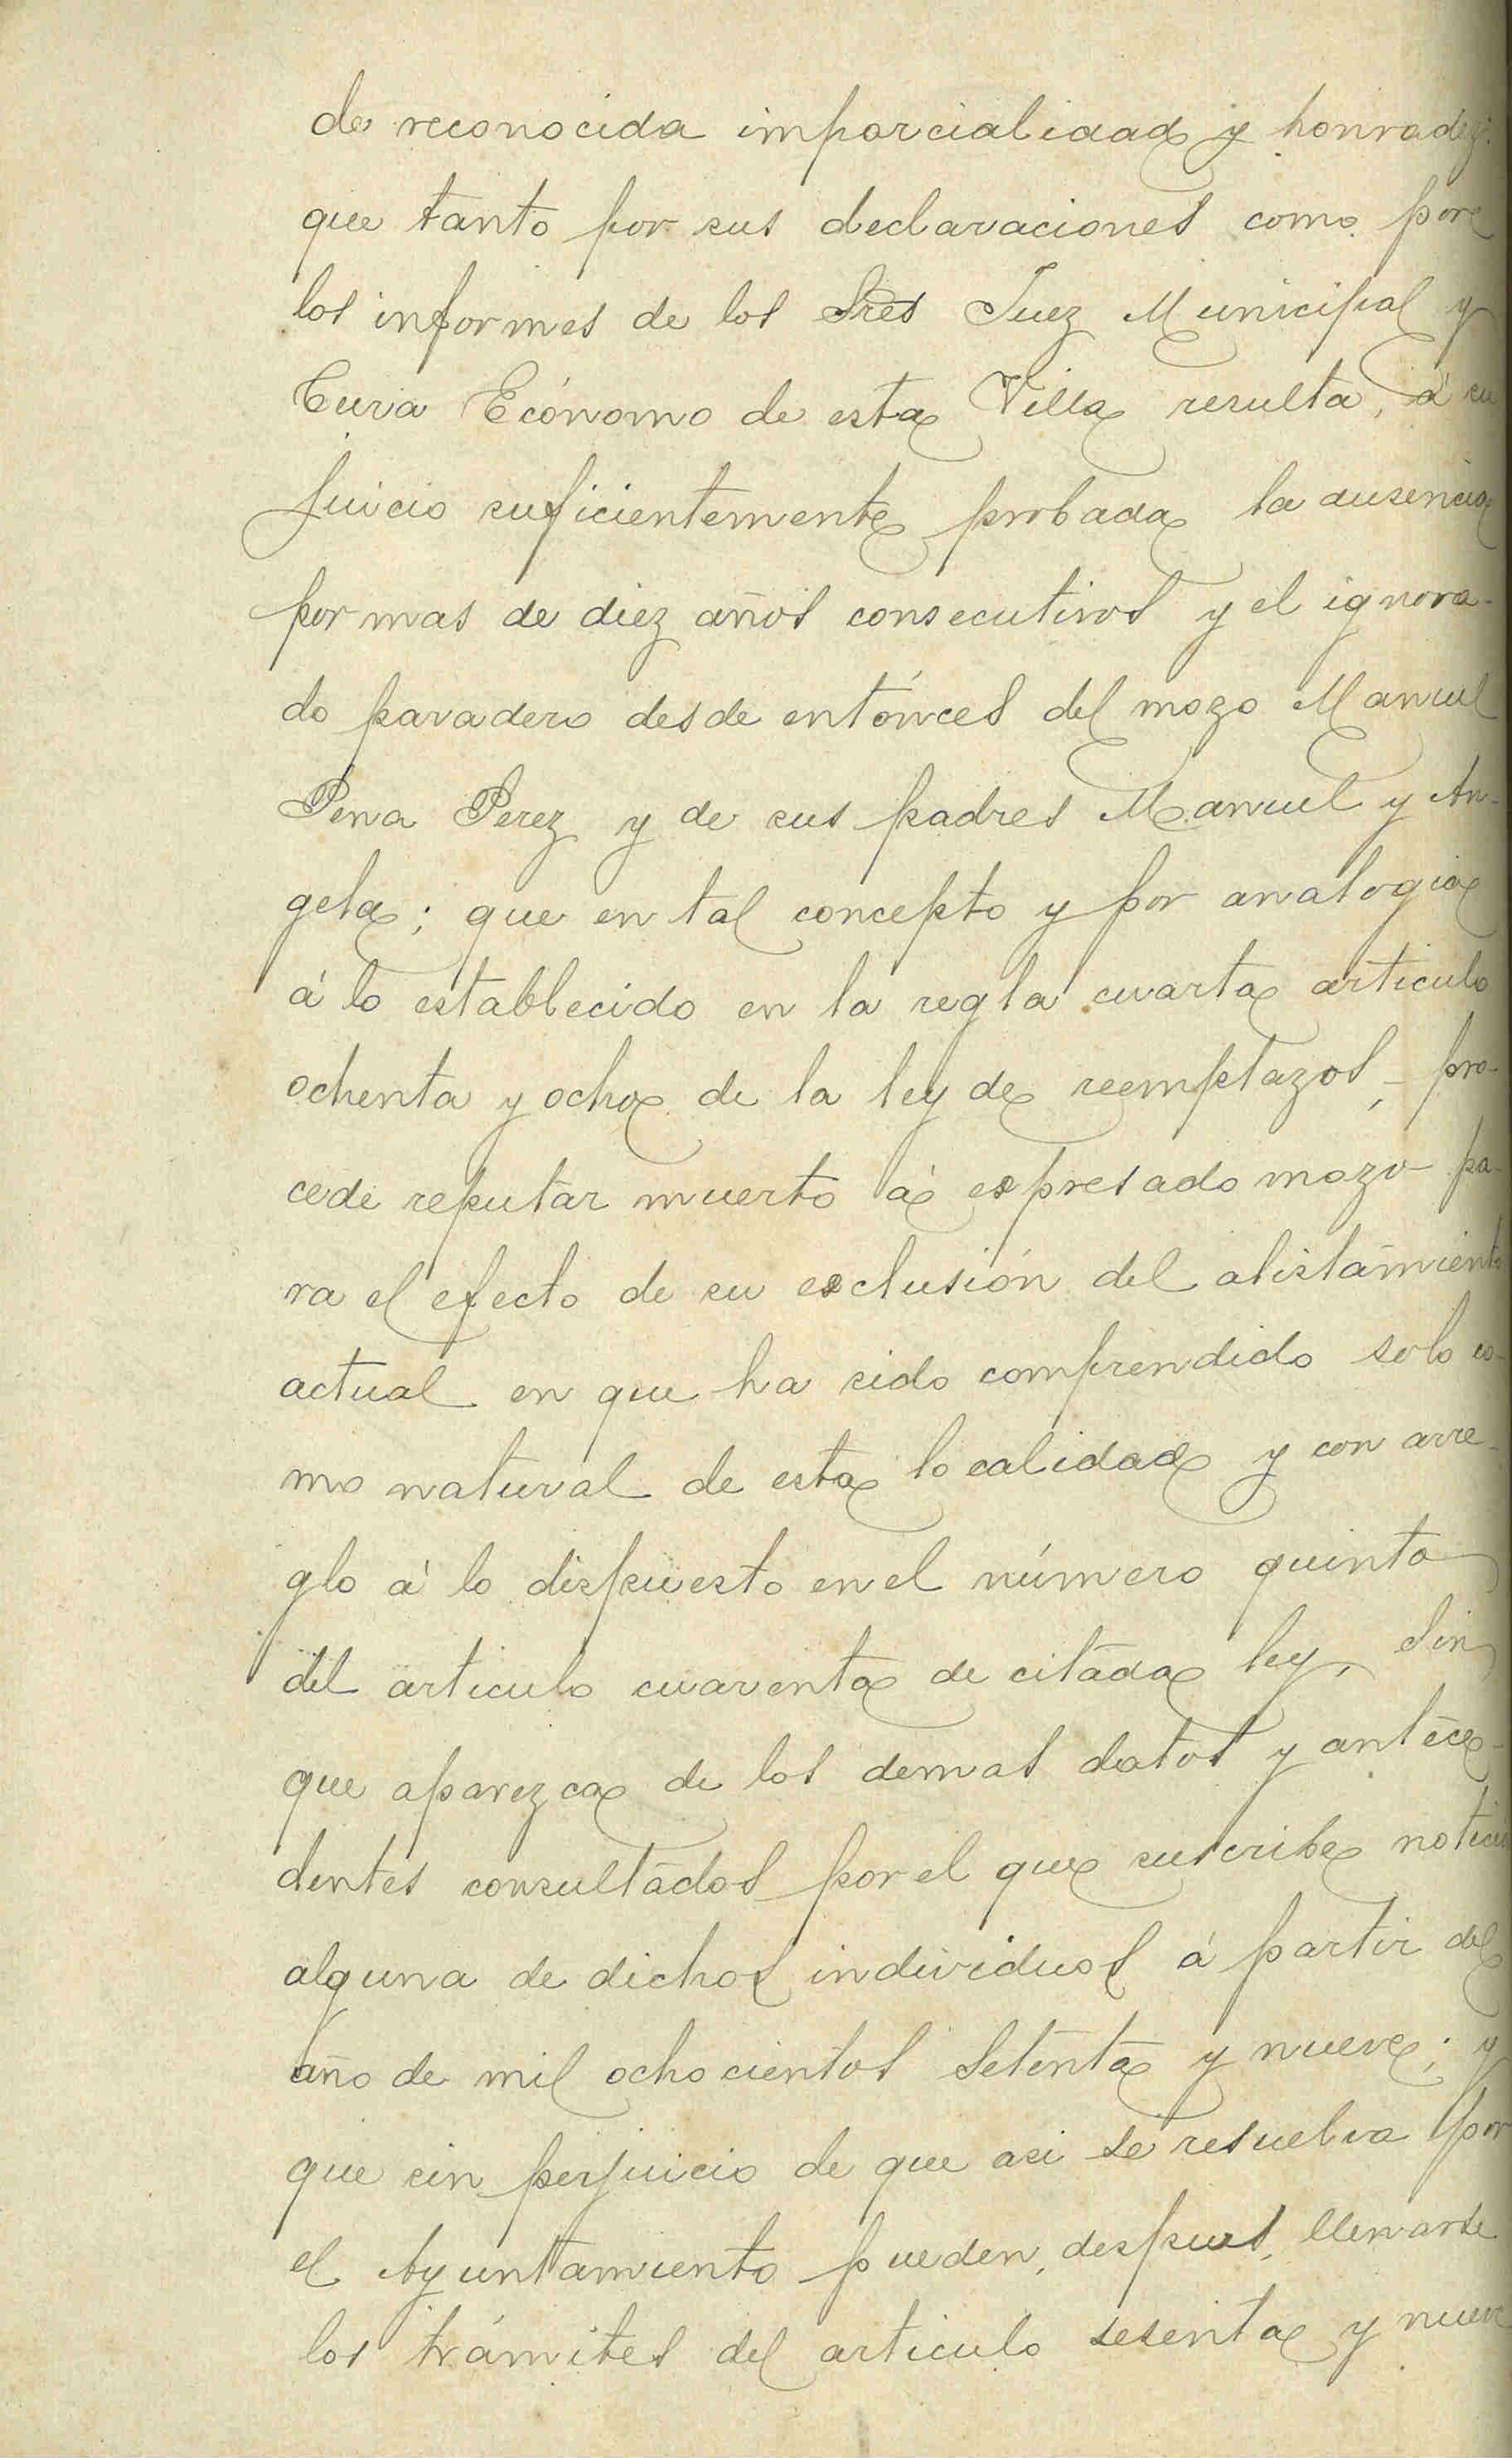 de reconocida imparcialidad y honradez;
que tanto por sus declaraciones como por
los informes de los Sres Juez Municipal y
Cura Ecónomo de esta Villa resulta, á su
juicio suficientemente probada la ausencia
por mas de diez años consecutivos y el ignora-
do paradero desde entónces del mozo Manuel
Pena Perez y de sus padres Manuel y An-
gela; que en tal concepto y por analogia
á lo establecido en la regla cuarta articulo
ochenta y ocho de la ley de reemplazos, pro-
cede reputar muerto á expresado mozo pa-
ra el efecto de su exclusión del alistamiento
actual en que ha sido comprendido solo co-
mo natural de esta localidad y con arre-
glo á lo dispuesto en el número quinto
del articulo cuarenta de citada ley, sin
que aparezca de los demas datos y antece-
dentes consultados por el que suscribe noticia
alguna de dichos individuos á partir del
año de mil ochocientos setenta y nueve; y
que sin perjuicio de que asi se resuelva por
el Ayuntamiento pueden, despues, llenarse
los trámites del articulo sesenta y nueve